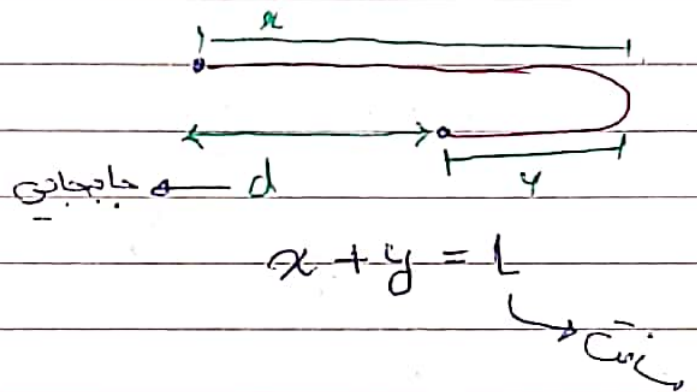 x
y
جابجایی ← d
x + y = L
مسافت